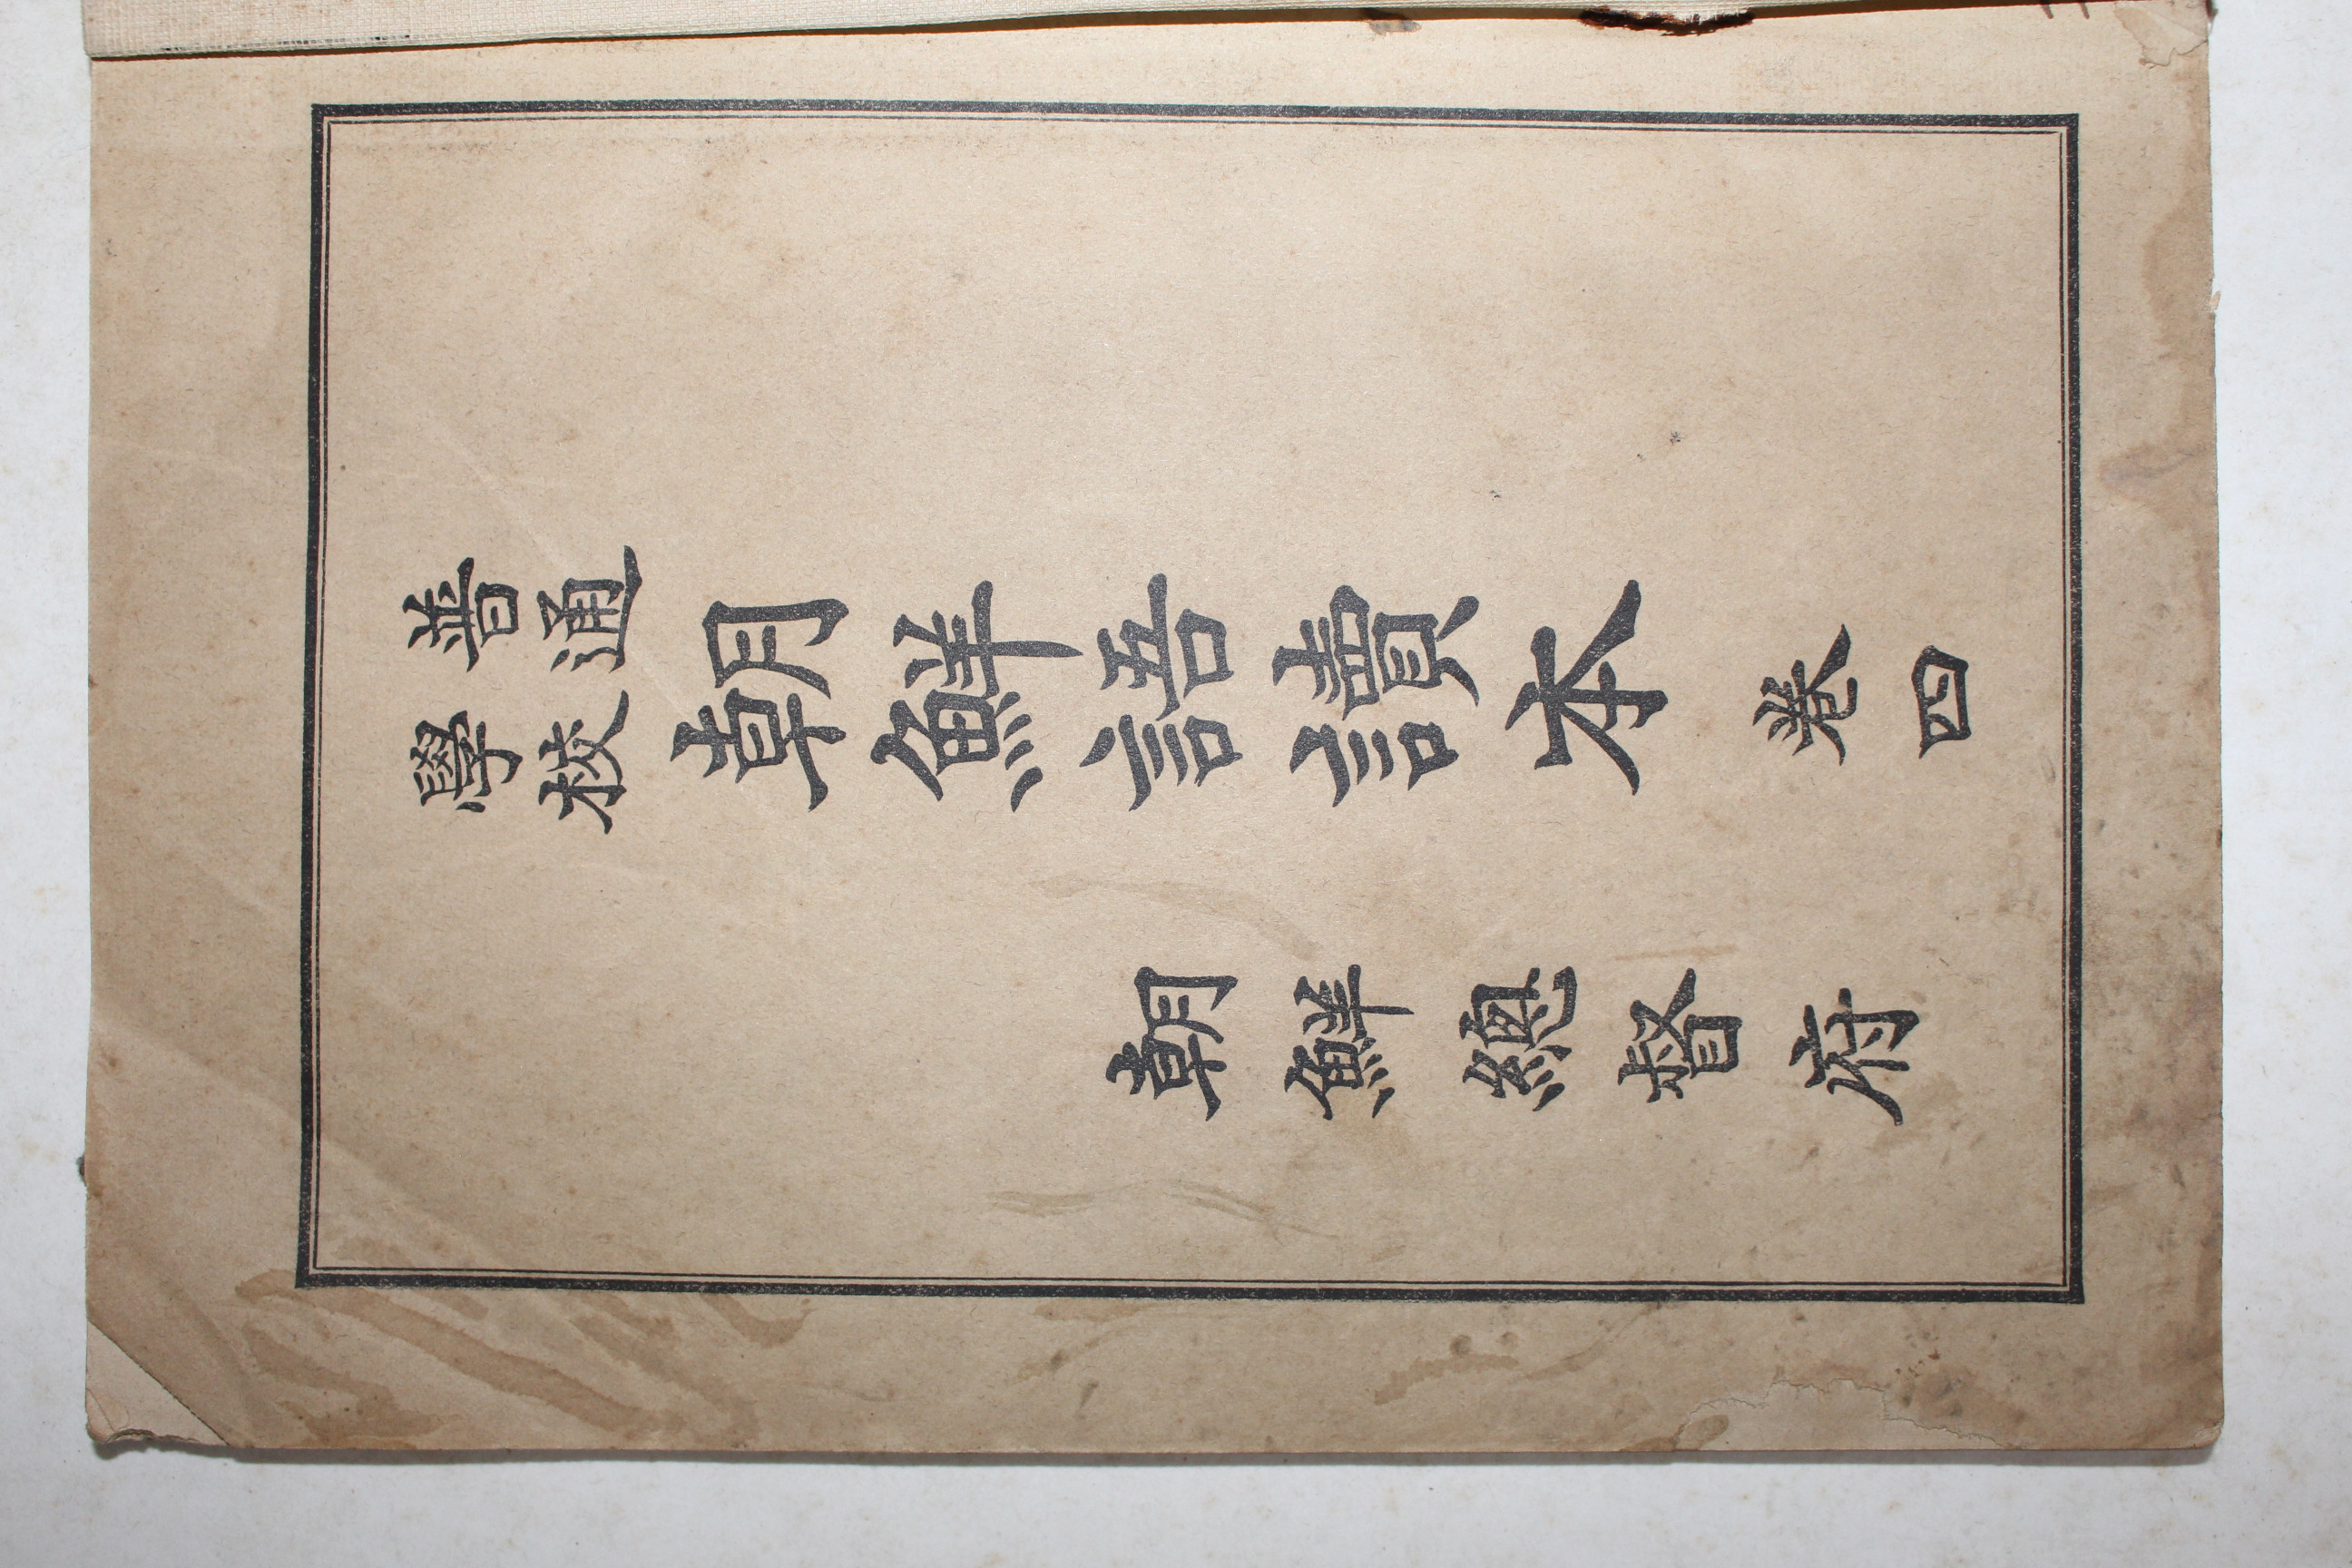 普通學校 朝鮮語讀本 卷四
朝鮮總督府